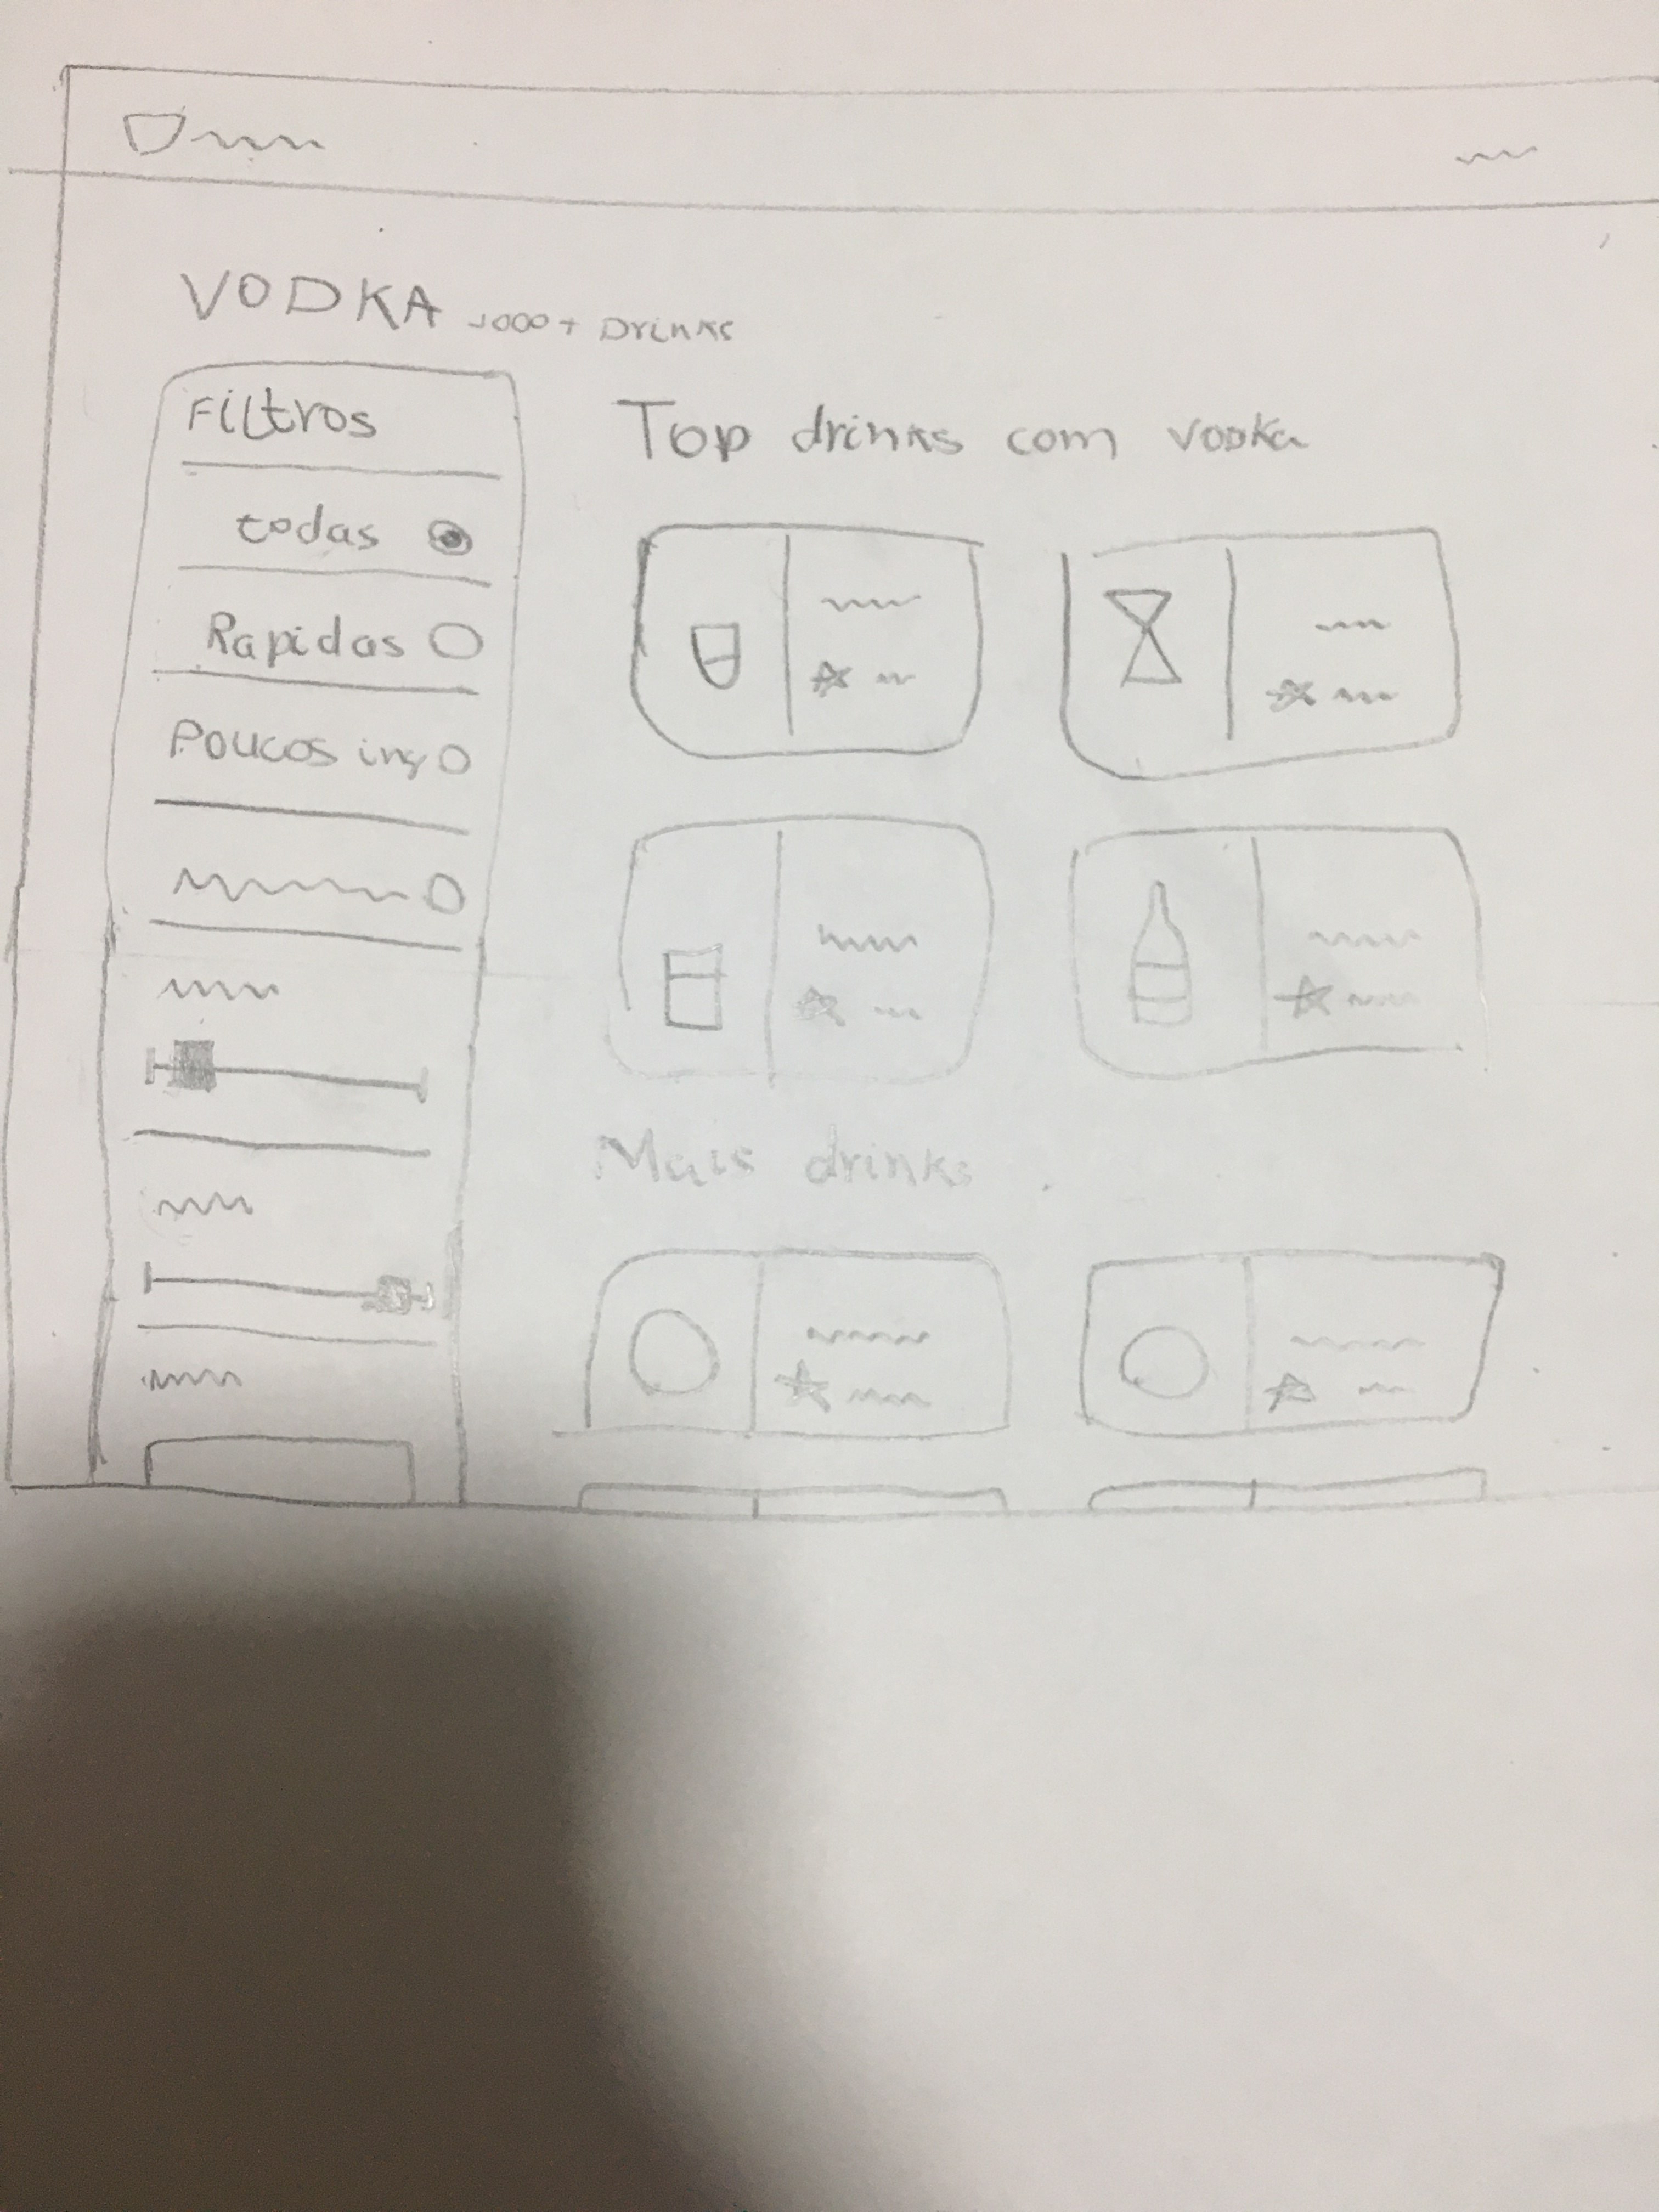 VODKA 1000+ Drinks
Filtros
todas
Rapidas
Poucos ing
Top drinks com vodka
Mais drinks